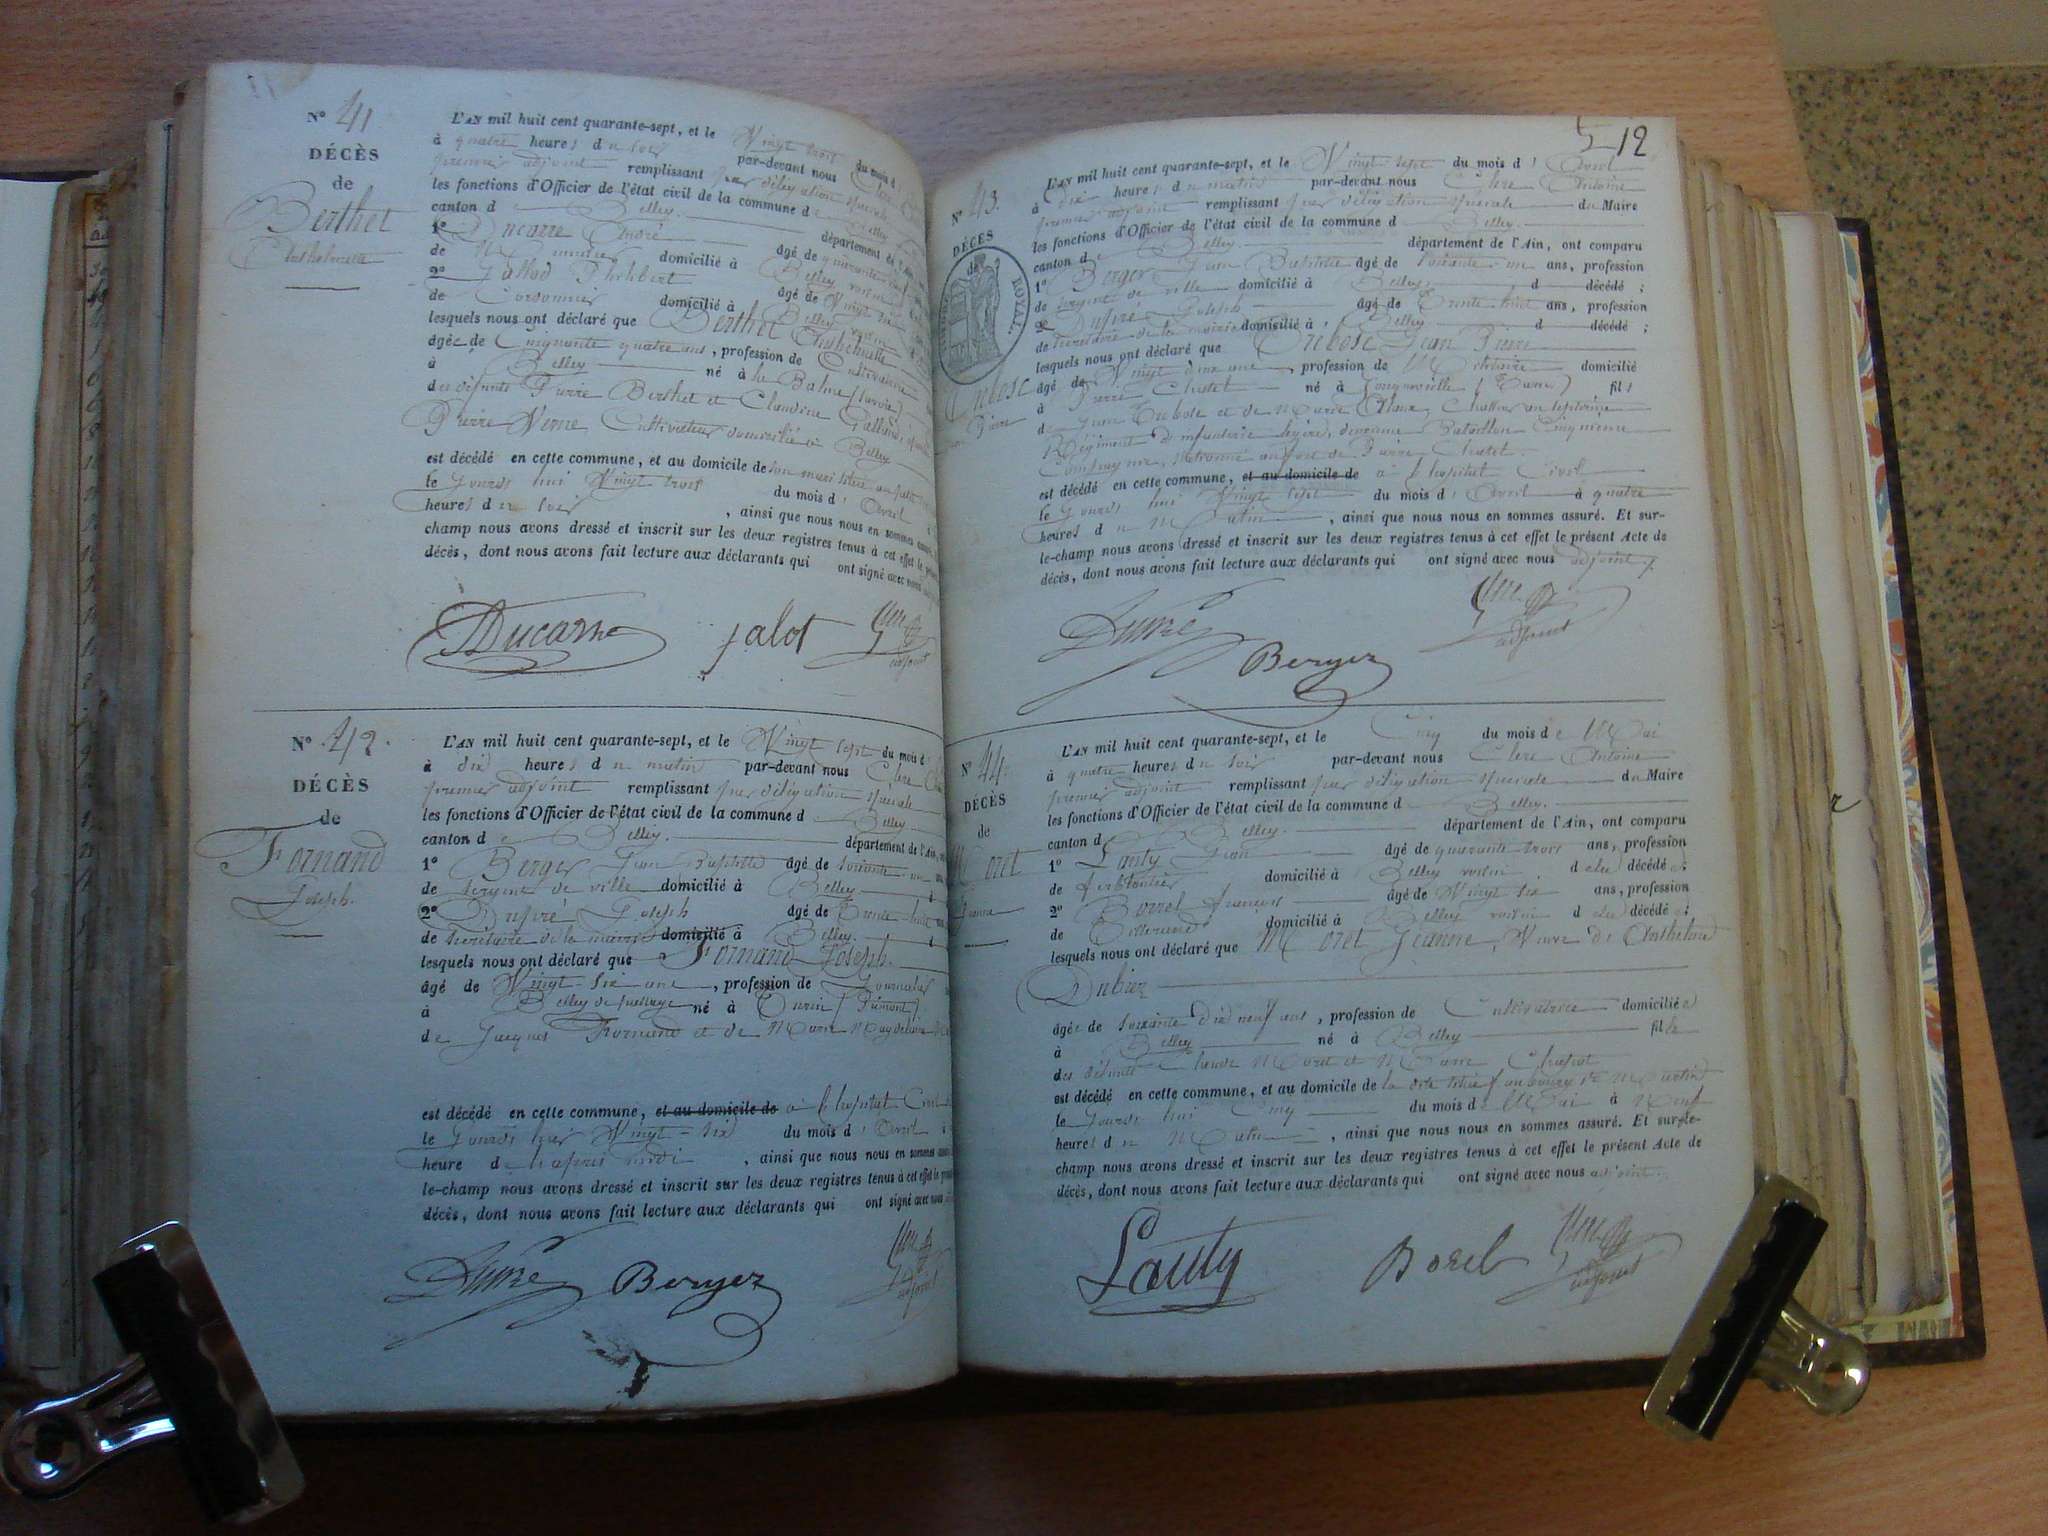 N° 41
DÉCÈS
de
Berthet
Anthelmette
L'AN mil huit cent quarante-sept, et le Vingt trois du mois d'
à quatre heures du soir par-devant nous Clerc
premier adjoint remplissant par délégation spéciale
les fonctions d'Officier de l'état civil de la commune de Belley
canton de Belley. département de l'Ain,
1° Ducarre André âgé de quarante
de domicilié à Belley voisin
2° Jallod Philibert âgé de Vingt six
de Cordonnier domicilié à Belley voisin
lesquels nous ont déclaré que Berthet Anthelmette
âgée de Cinquante quatre ans, profession de Cultivatrice
à Belley né à la Balme (Savoie)
des défunts Pierre Berthet et Claudine
Pierre Verne Cultivateur domicilié à Belley
est décédé en cette commune, et au domicile de son mari
le Jourd'hui Vingt trois du mois d'Avril
heures du soir, ainsi que nous nous en sommes assuré.
champ nous avons dressé et inscrit sur les deux registres tenus à cet effet le
décès, dont nous avons fait lecture aux déclarants qui ont signé avec nous
Ducarre jalot
adjoint
N° 42.
DÉCÈS
de
Fornand
Joseph.
L'AN mil huit cent quarante-sept, et le Vingt sept du mois d'
à dix heures du matin par-devant nous Clerc
premier adjoint remplissant par délégation spéciale
les fonctions d'Officier de l'état civil de la commune de Belley
canton de Belley. département de l'Ain,
1° Berger Jean Baptiste âgé de soixante un
de sergent de ville domicilié à Belley
2° Dupré Joseph âgé de Trente huit
de secrétaire de la mairie domicilié à Belley.
lesquels nous ont déclaré que Fornand Joseph.
âgé de Vingt six ans, profession de Journalier
à Belley de passage né à Turin (Piémont)
de Jacques Fornand et de Marie Magdelaine
est décédé en cette commune, et au domicile de à l'hopital Civil
le Jourd'hier Vingt-six du mois d'Avril à
heure de l'après midi, ainsi que nous nous en sommes
le-champ nous avons dressé et inscrit sur les deux registres tenus à cet effet le
décès, dont nous avons fait lecture aux déclarants qui ont signé avec nous
Dupré Berger
adjoint
12
N° 43.
DÉCÈS
de
ROYAL.
L'AN mil huit cent quarante-sept, et le Vingt sept du mois d'Avril
à dix heures du matin par-devant nous Clerc Antoine
premier adjoint remplissant par délégation spéciale du Maire
les fonctions d'Officier de l'état civil de la commune d Belley.
canton de Belley. département de l'Ain, ont comparu
1° Berger Jean Baptiste âgé de soixante un ans, profession
de sergent de ville domicilié à Belley d décédé ;
2° Dupré Joseph âgé de Trente huit ans, profession
de secrétaire de la mairie domicilié à Belley d décédé ;
lesquels nous ont déclaré que Jean Pierre
âgé de Vingt deux ans, profession de Militaire domicilié
à Pierre Chatel né à fils
de Jean et de Marie Chasseur au septième
Régiment d'infanterie légère, deuxième Bataillon Cinquième
Compagnie, au fort de Pierre Chatel.
est décédé en cette commune, et au domicile de à l'hopital Civil
le Jourd'hui Vingt sept du mois d'Avril à quatre
heures du Matin, ainsi que nous nous en sommes assuré. Et sur-
le-champ nous avons dressé et inscrit sur les deux registres tenus à cet effet le présent Acte de
décès, dont nous avons fait lecture aux déclarants qui ont signé avec nous adjoint.
Dupré Berger
adjoint
N° 44.
DÉCÈS
de
Moret
Jeanne
L'AN mil huit cent quarante-sept, et le Cinq du mois de Mai
à quatre heures du soir par-devant nous Clerc Antoine
premier adjoint remplissant par délégation spéciale du Maire
les fonctions d'Officier de l'état civil de la commune d Belley.
canton de Belley. département de l'Ain, ont comparu
1° Lauty Jean âgé de quarante trois ans, profession
de ferblantier domicilié à Belley voisin d ela décédée ;
2° Borrel François âgé de Vingt six ans, profession
de domicilié à Belley voisin d ela décédée ;
lesquels nous ont déclaré que Moret Jeanne, Veuve de Anthelme
Dubiez
âgée de soixante dix neuf ans, profession de Cultivatrice domiciliée
à Belley né à Belley fille
des défunts Claude Moret et Marie
est décédé en cette commune, et au domicile de la dite faubourg St Martin
le Jourd'hui Cinq du mois de Mai à Neuf
heures du Matin, ainsi que nous nous en sommes assuré. Et sur-le-
champ nous avons dressé et inscrit sur les deux registres tenus à cet effet le présent Acte de
décès, dont nous avons fait lecture aux déclarants qui ont signé avec nous adjoint.
Lauty Borel
adjoint